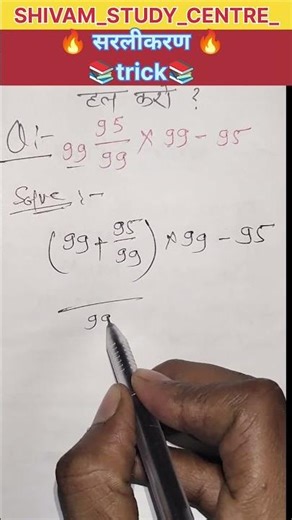 SHIVAM_STUDY_CENTRE_
🔥 सरलीकरण 🔥
📚trick📚
हल करो ?
Q:- 99 95/99 × 99 - 95
Solve :-
(99 + 95/99) × 99 - 95
99